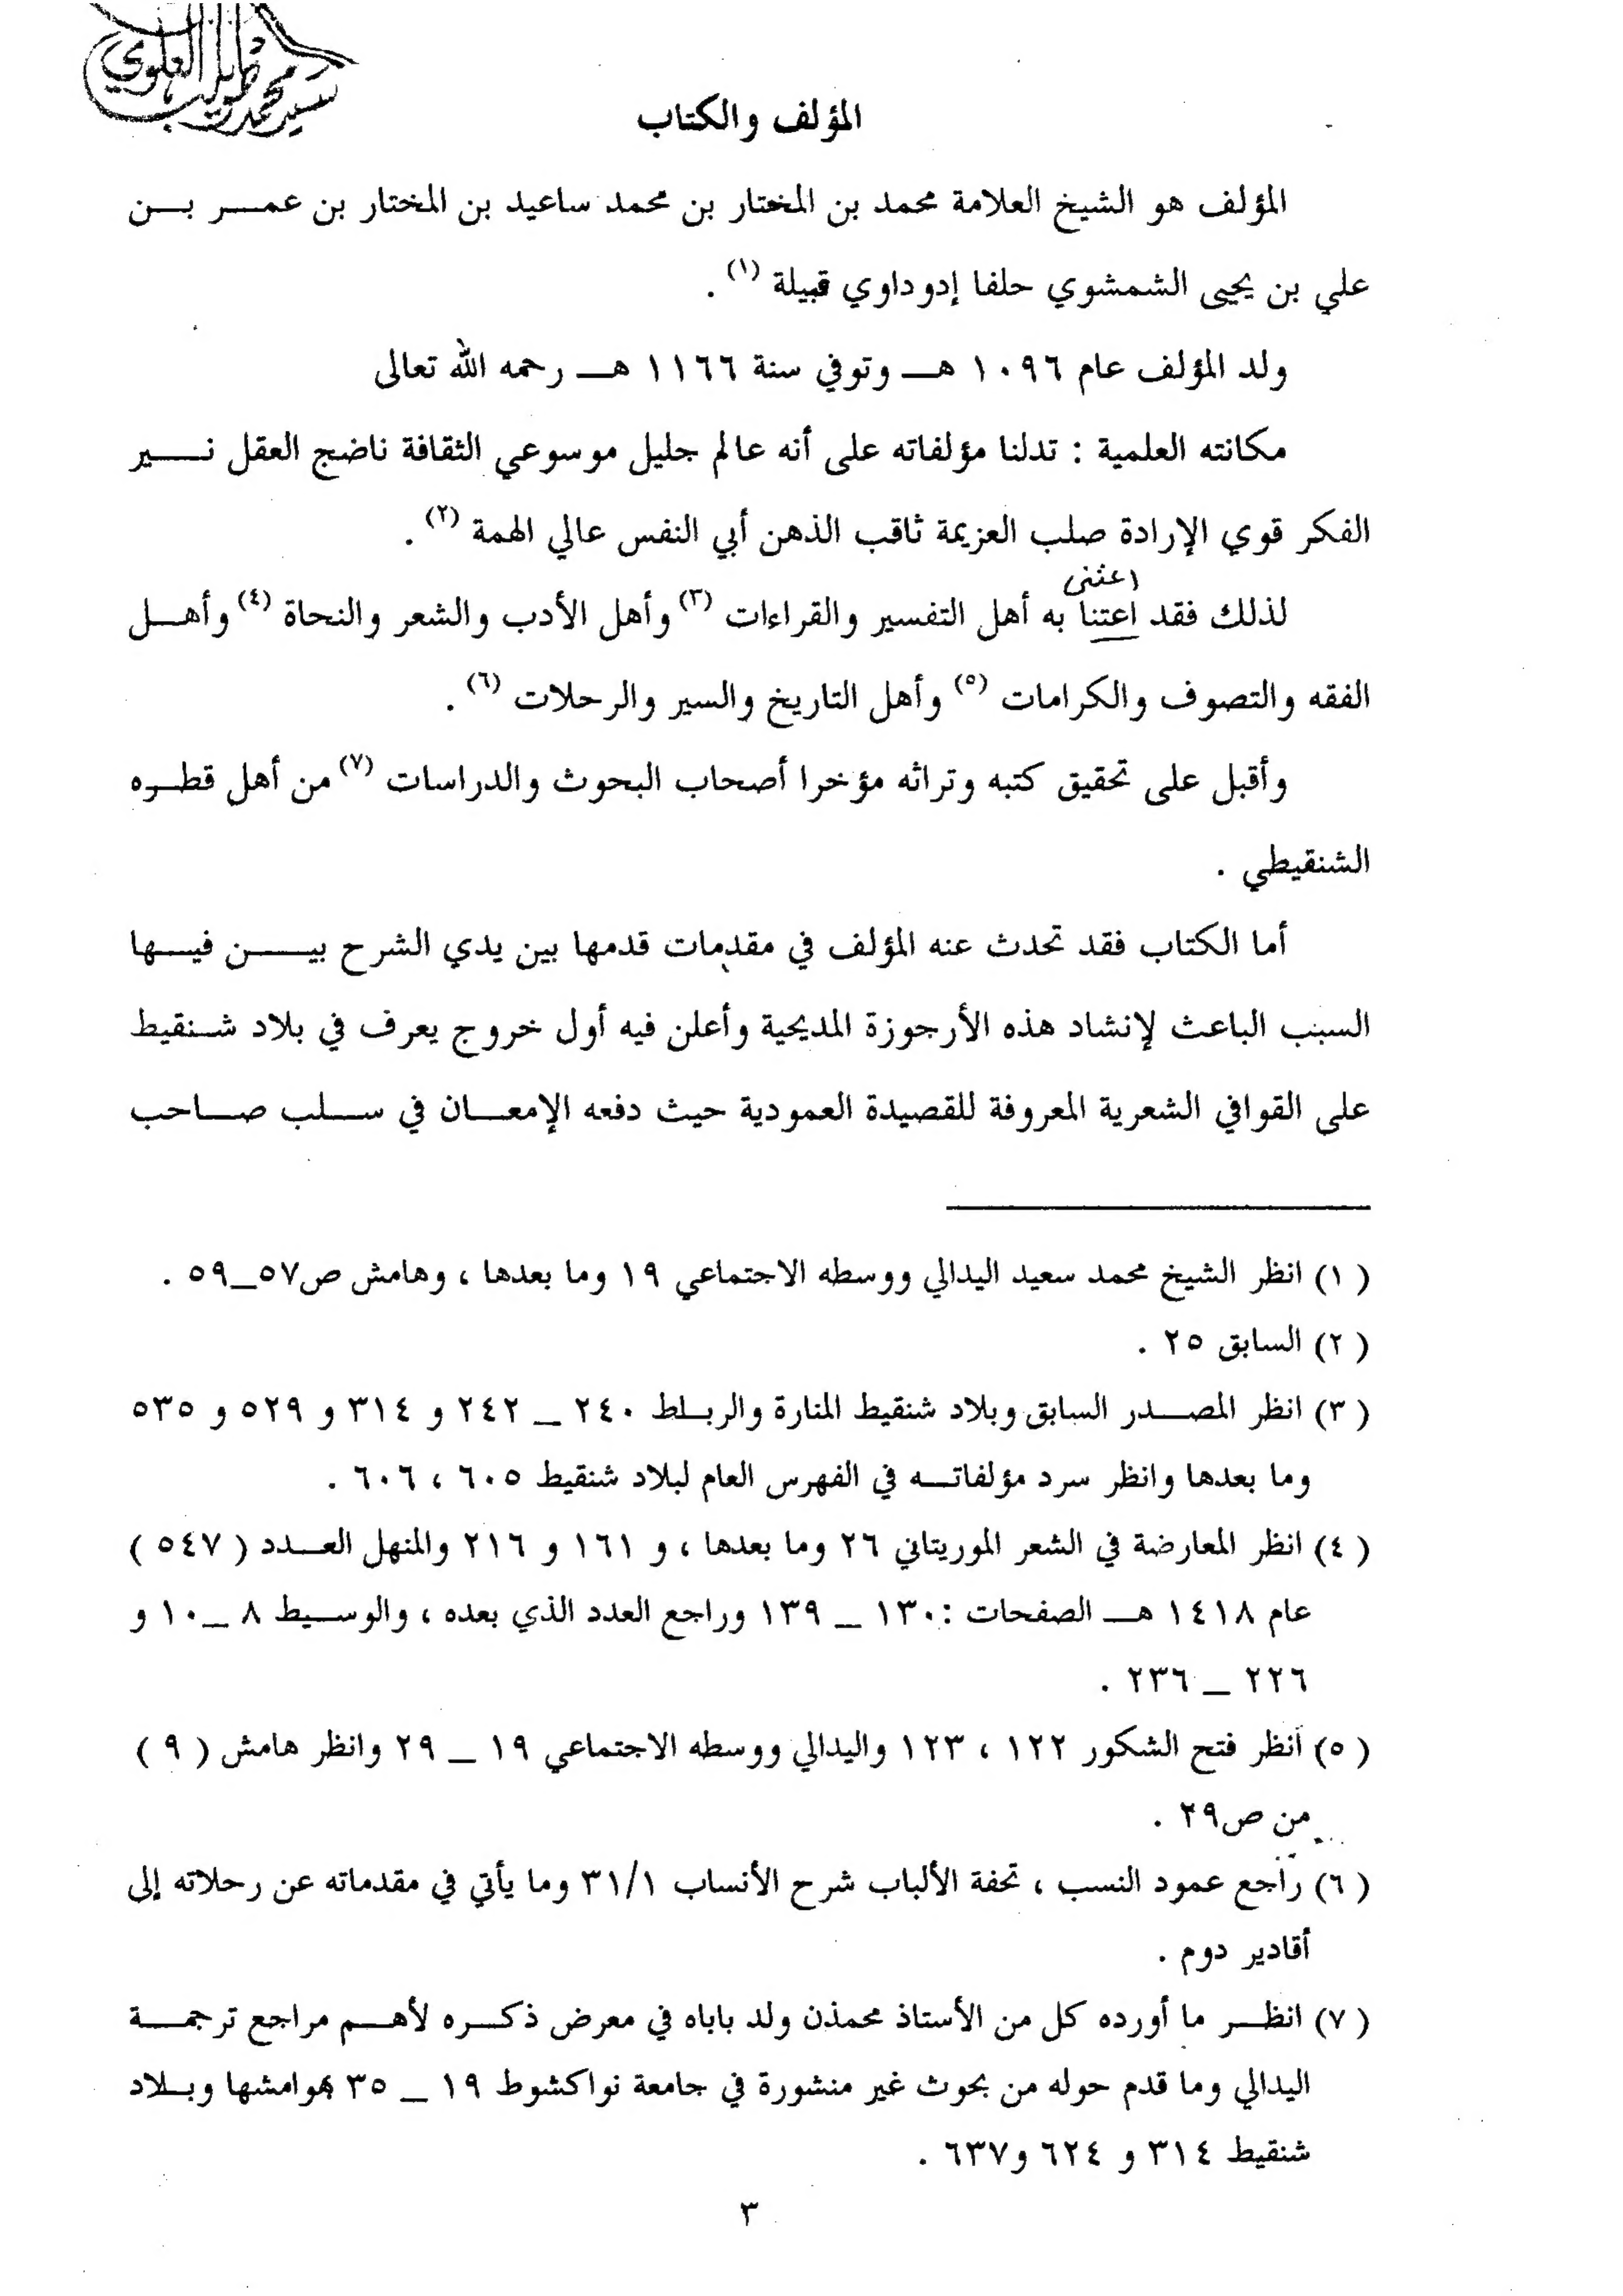 سيد محمد ولد بابا العلوي
المؤلف والكتاب
المؤلف هو الشيخ العلامة محمد بن المختار بن محمد ساعيد بن المختار بن عمر بن
علي بن يحيى الشمشوي حلفا إدوداوي قبيلة (١) .
ولد المؤلف عام ١٠٩٦ هـ وتوفي سنة ١١٦٦ هـ رحمه الله تعالى
مكانته العلمية : تدلنا مؤلفاته على أنه عالم جليل موسوعي الثقافة ناضج العقل نير
الفكر قوي الإرادة صلب العزيمة ثاقب الذهن أبي النفس عالي الهمة (٢) .
اعتنى
لذلك فقد اعتنا به أهل التفسير والقراءات (٣) وأهل الأدب والشعر والنحاة (٤) وأهل
الفقه والتصوف والكرامات (٥) وأهل التاريخ والسير والرحلات (٦) .
وأقبل على تحقيق كتبه وتراثه مؤخرا أصحاب البحوث والدراسات (٧) من أهل قطره
الشنقيطي .
أما الكتاب فقد تحدث عنه المؤلف في مقدمات قدمها بين يدي الشرح بين فيها
السبب الباعث لإنشاد هذه الأرجوزة المديحية وأعلن فيه أول خروج يعرف في بلاد شنقيط
على القوافي الشعرية المعروفة للقصيدة العمودية حيث دفعه الإمعان في سلب صاحب
(١) انظر الشيخ محمد سعيد اليدالي ووسطه الاجتماعي ١٩ وما بعدها ، وهامش ص٥٧_٥٩ .
(٢) السابق ٢٥ .
(٣) انظر المصدر السابق وبلاد شنقيط المنارة والربلط ٢٤٠ _ ٢٤٢ و ٣١٤ و ٥٢٩ و ٥٣٥
وما بعدها وانظر سرد مؤلفاته في الفهرس العام لبلاد شنقيط ٦٠٥ ، ٦٠٦ .
(٤) انظر المعارضة في الشعر الموريتاني ٢٦ وما بعدها ، و ١٦١ و ٢١٦ والمنهل العدد ( ٥٤٧ )
عام ١٤١٨ هـ الصفحات : ١٣٠ _ ١٣٩ وراجع العدد الذي بعده ، والوسيط ٨ _١٠ و
٢٢٦ _ ٢٣٦ .
(٥) أنظر فتح الشكور ١٢٢ ، ١٢٣ واليدالي ووسطه الاجتماعي ١٩ _ ٢٩ وانظر هامش ( ٩ )
من ص٢٩ .
(٦) راجع عمود النسب ، تحفة الألباب شرح الأنساب ٣١/١ وما يأتي في مقدماته عن رحلاته إلى
أقادير دوم .
(٧) انظر ما أورده كل من الأستاذ محمذن ولد باباه في معرض ذكره لأهم مراجع ترجمة
اليدالي وما قدم حوله من بحوث غير منشورة في جامعة نواكشوط ١٩ _ ٣٥ بهوامشها وبلاد
شنقيط ٣١٤ و ٦٢٤ و٦٣٧ .
٣